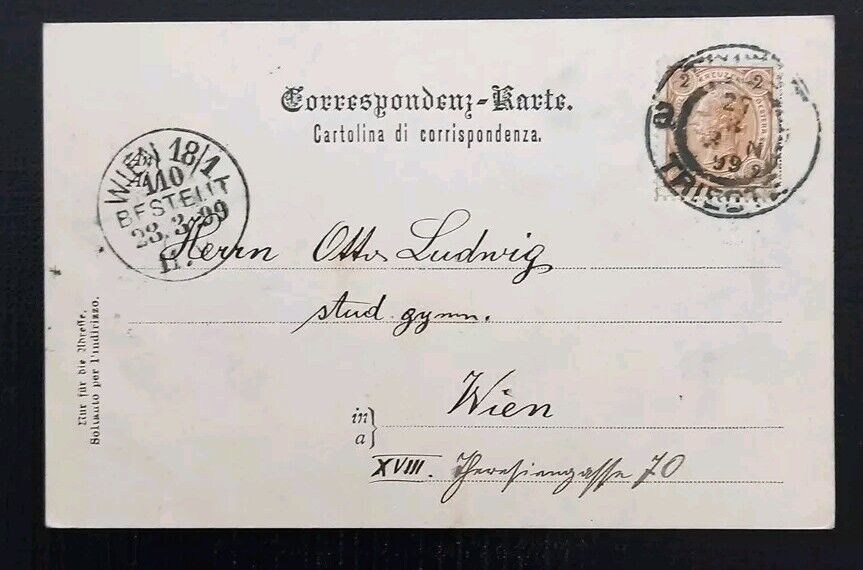 Correspondenz-Karte.
Cartolina di corrispondenza.
2 KREUZER 2
2
99
TRIEST
WIEN 18/1
1/10
BESTELLT
23.3.99
Herrn Otto Ludwig
stud. gymn.
in } Wien
a
XVIII. Theresiengasse 70
Nur für die Adresse.
Soltanto per l'indirizzo.